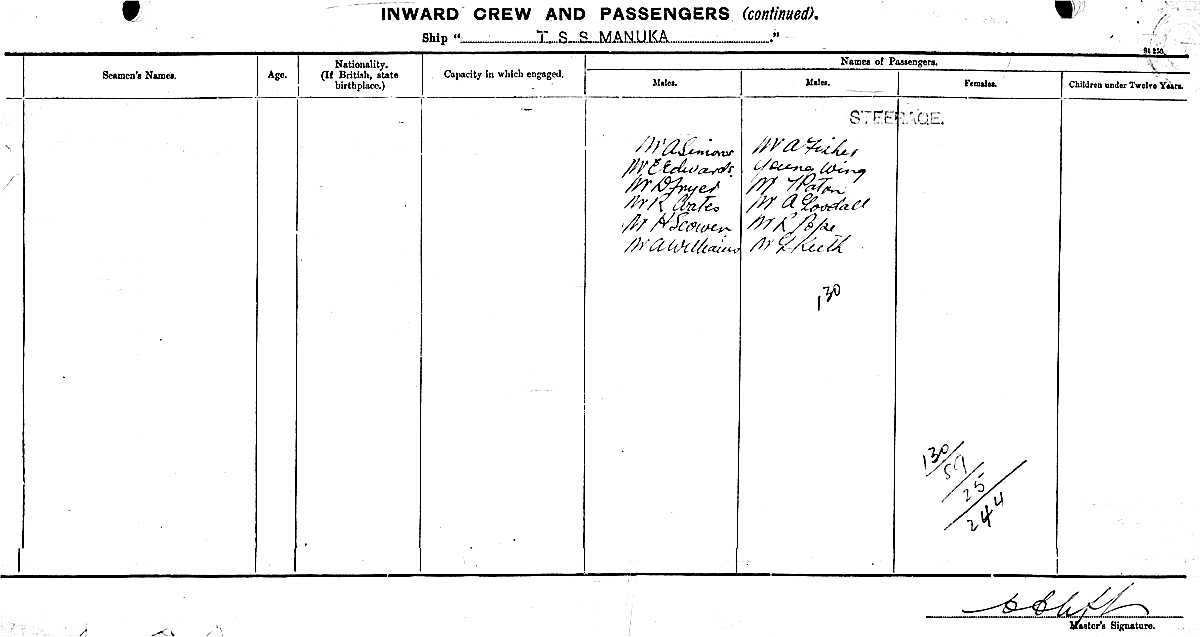 INWARD CREW AND PASSENGERS (continued).
Ship "T S S MANUKA."
Seamen's Names.
Age.
Nationality.
(If British, state
birthplace.)
Capacity in which engaged.
Names of Passengers.
Males.
Males.
Females.
Children under Twelve Years.
STEERAGE.
Mr A Simons
Mr A Fisher
Mr E Edwards.
Young Wing
Mr D Fryer
M Paton
Mr R Oates
Mr A Goodall
Mr H Scowen
Mr R Pope
Mr A Williams
Mr L Keith
130
130
89
25
244
Master's Signature.